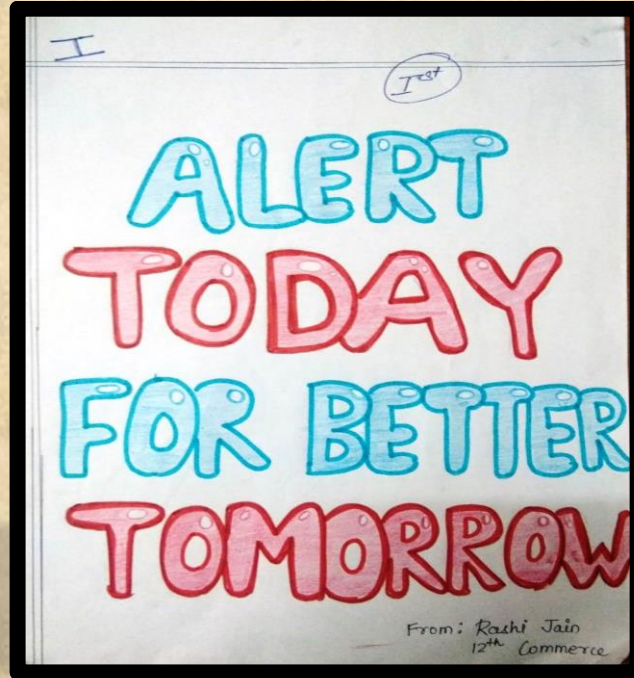 I
Ist
ALERT
TODAY
FOR BETTER
TOMORROW
From: Rashi Jain
12th Commerce